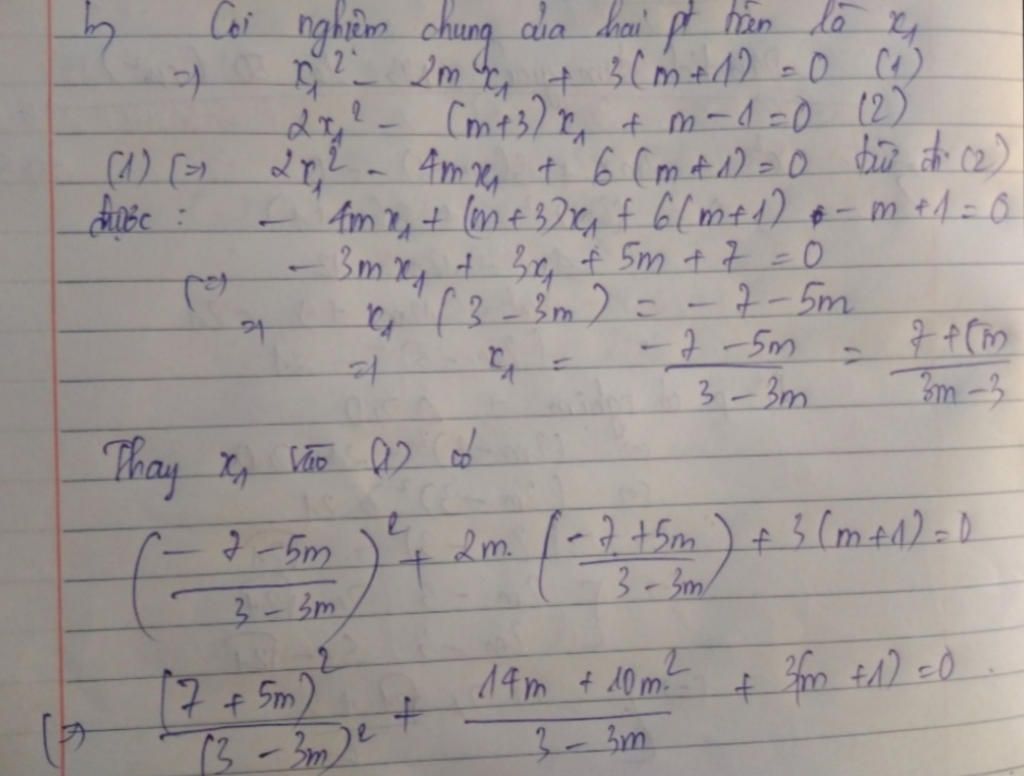 b, Coi nghiệm chung của hai pt trên là x₁
=> x₁² - 2m x₁ + 3(m+1) = 0 (1)
2x₁² - (m+3) x₁ + m - 1 = 0 (2)
(1) (=> 2x₁² - 4mx₁ + 6(m+1) = 0 trừ đi (2)
được : - 4mx₁ + (m+3)x₁ + 6(m+1) - m + 1 = 0
(=> - 3mx₁ + 3x₁ + 5m + 7 = 0
=> x₁ (3 - 3m) = - 7 - 5m
=> x₁ = (-7 - 5m)/(3 - 3m) = (7 + 5m)/(3m - 3)
Thay x₁ vào (1) có
((-7 - 5m)/(3 - 3m))² + 2m. ((-7 + 5m)/(3 - 3m)) + 3(m+1) = 0
(=> (7 + 5m)²/(3 - 3m)² + (14m + 10m²)/(3 - 3m) + 3(m+1) = 0